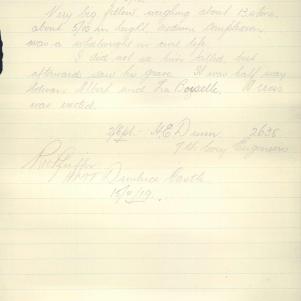 Very big fellow weighing about 13 stone,
about 5/10 in height, medium complexion,
was a in civil life.
I did not see him killed, but
afterwards saw his grave. It was half way
between Albert and La Boiselle. A cross
was erected.
2/Cpl. H.E. Dunn 2695
7th Coy Engineers
Dunluce Castle